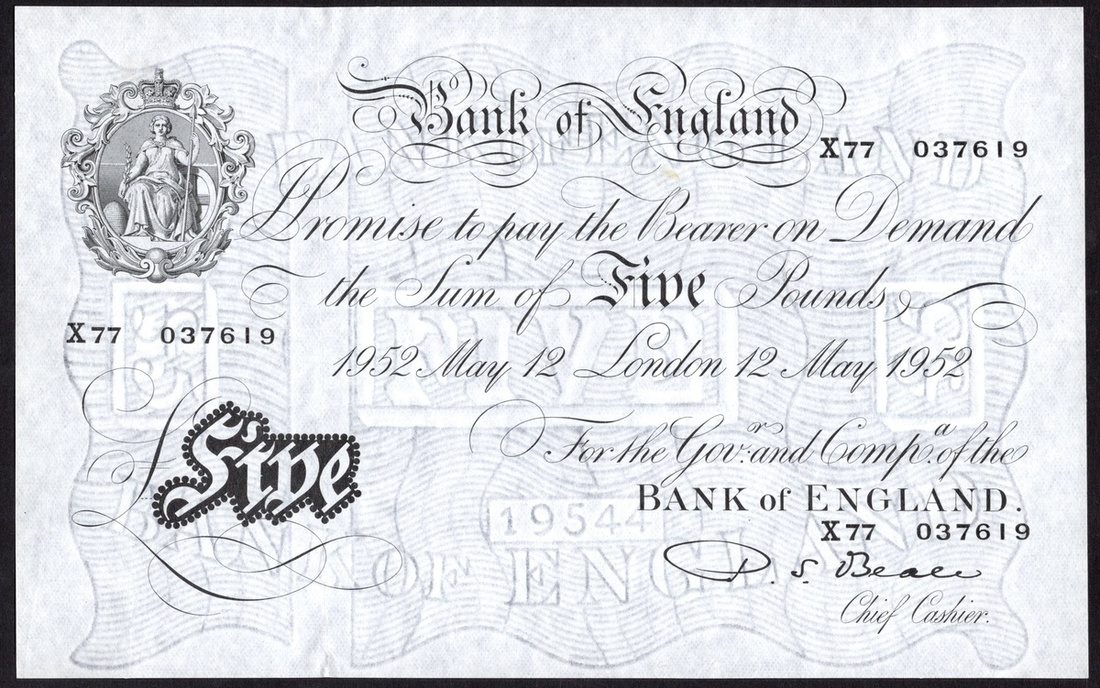 Bank of England
X77 037619
I Promise to pay the Bearer on Demand
the Sum of Five Pounds
X77 037619
1952 May 12 London 12 May 1952
For the Govr. and Compa. of the
BANK of ENGLAND.
£Five
19544
X77 037619
P. S. Beale
Chief Cashier.
FIVE
BANK OF ENGLAND